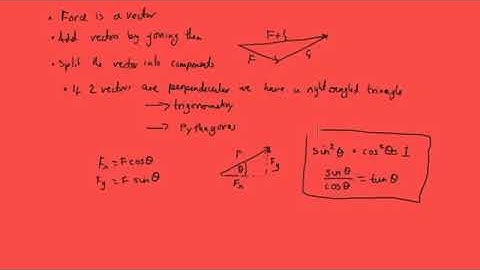 • Force is a vector
• Add vectors by joining them
F+G
F
G
• Split the vector into components
• If 2 vectors are perpendicular we have a right angled triangle
→ trigonometry
→ Pythagoras
Fx = F cosθ
Fy = F sinθ
F
θ
Fx
Fy
sin²θ + cos²θ = 1
sinθ/cosθ = tanθ